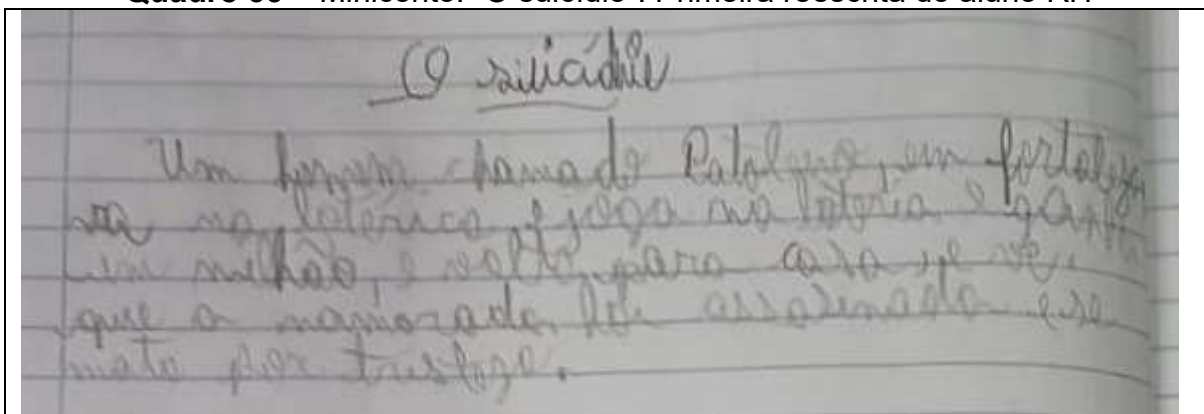 O suicídio
Um homem chamado em fortaleza
vai na lotérica, e joga na loteria e ganha
um milhão, e volta para casa, e vê
que a namorada foi assasinada e se
mata por tristeza.